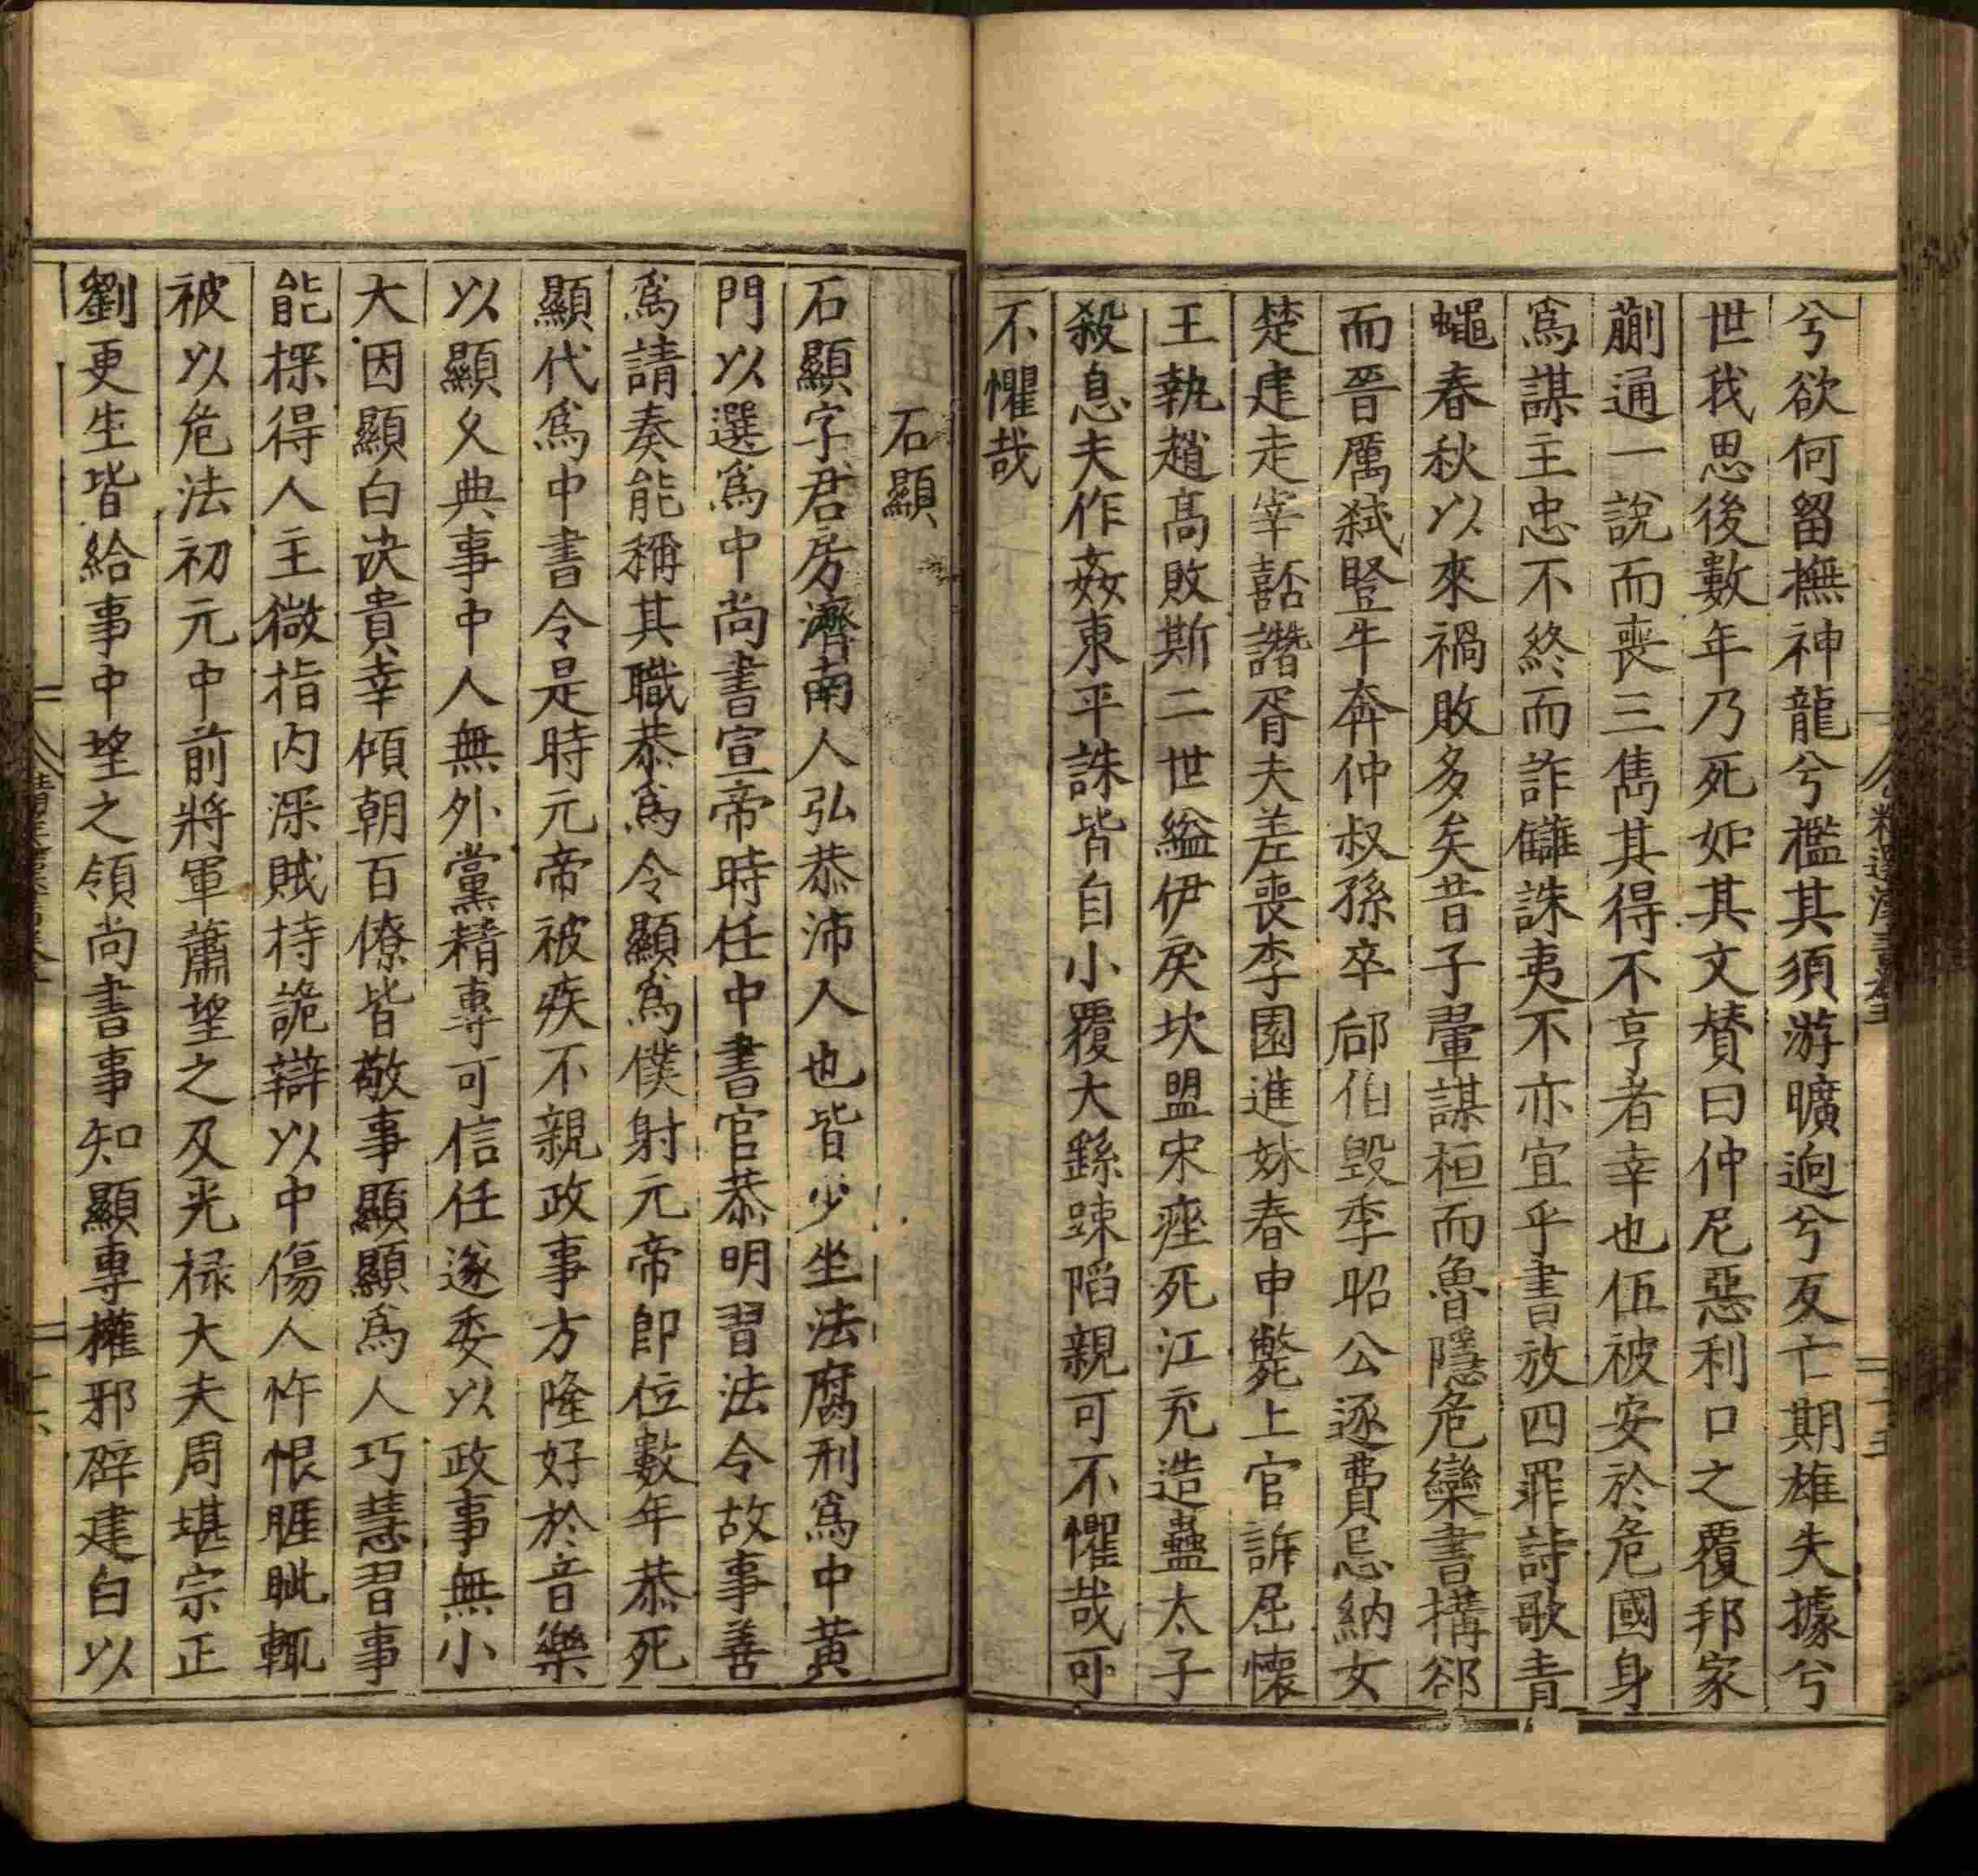 兮欲何留撫神龍兮檻其須游曠逈兮反亡期雄失據兮
世我思後數年乃死如其文賛曰仲尼惡利口之覆邦家
蒯通一說而喪三雋其得不亨者幸也伍被安於危國身
爲謀主忠不終而詐讎誅夷不亦宜乎書放四罪詩歌青
蠅春秋以來禍敗多矣昔子翬謀桓而魯隱危欒書搆郤
而晉厲弑豎牛奔仲叔孫卒郈伯毀季昭公逐費忌納女
楚建走宰嚭譖胥夫差喪李園進妹春申斃上官訴屈懷
王執趙高敗斯二世縊伊戾坎盟宋痤死江充造蠱太子
殺息夫作姦東平誅皆自小覆大繇踈陷親可不懼哉可
不懼哉
石顯
石顯字君房濟南人弘恭沛人也皆少坐法腐刑爲中黄
門以選爲中尚書宣帝時任中書官恭明習法令故事善
爲請奏能稱其職恭爲令顯爲僕射元帝即位數年恭死
顯代爲中書令是時元帝被疾不親政事方隆好於音樂
以顯久典事中人無外黨精專可信任遂委以政事無小
大因顯白决貴幸傾朝百僚皆敬事顯顯爲人巧慧習事
能探得人主微指内深賊持詭辯以中傷人忤恨睚眦輒
被以危法初元中前將軍蕭望之及光禄大夫周堪宗正
劉更生皆給事中望之領尚書事知顯專權邪辟建白以